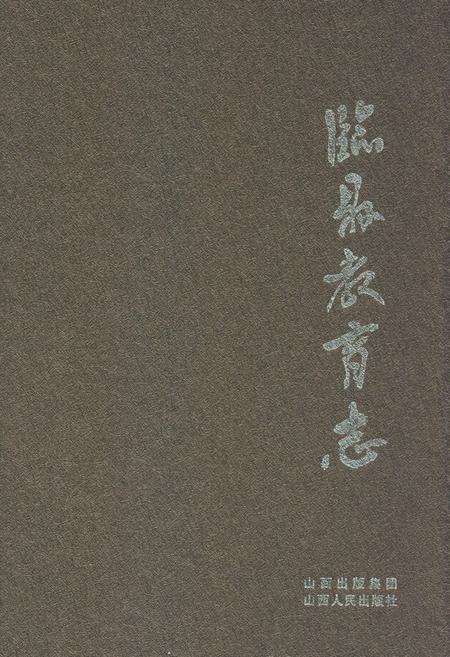 臨县教育志
山西出版集团
山西人民出版社